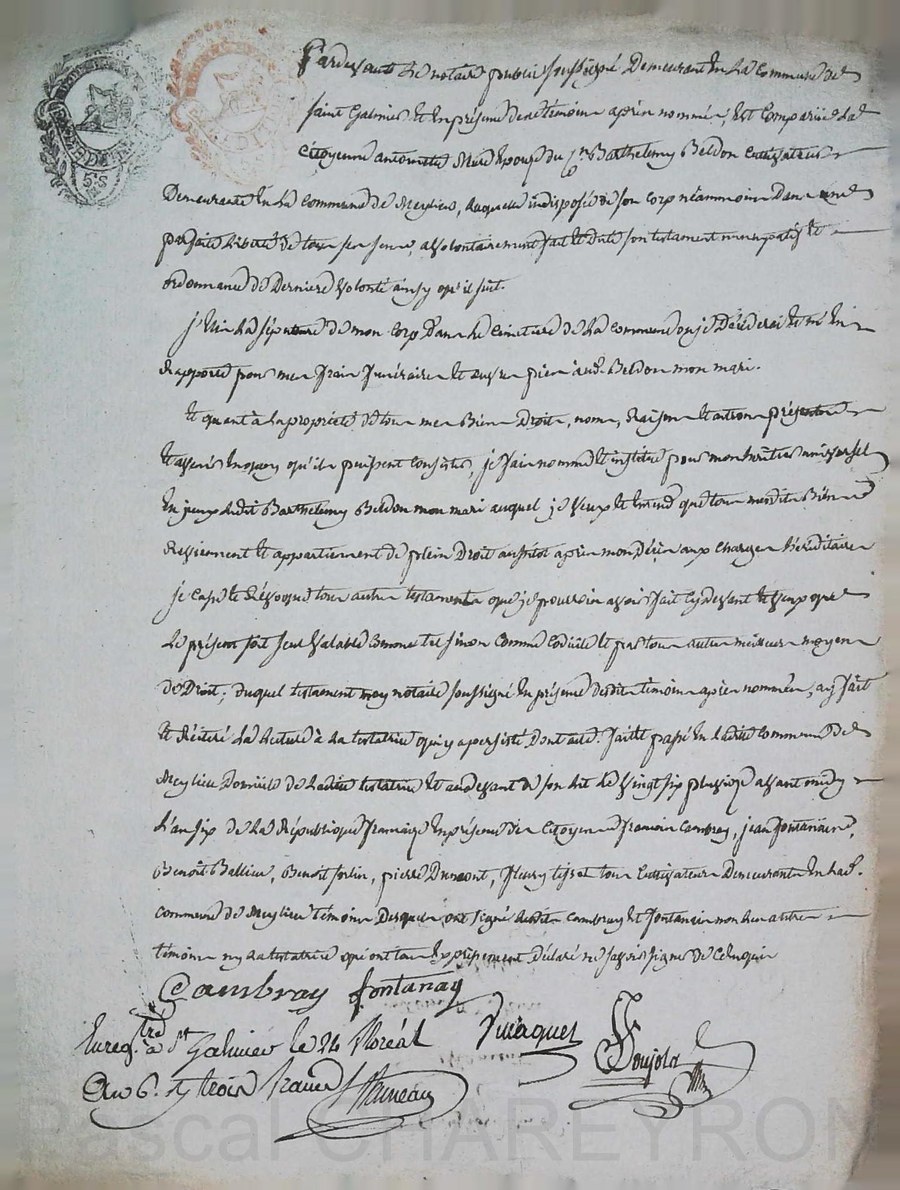 Pardevant Le notaire public soussigné Demeurant En La Commune de
Saint Galmier Et En présence des témoins après nommés, Est Comparüe La
Citoyenne antoinette épouse du Cn Barthelemy Beldon Cultivateur
Demeurante En La Commune de Meylieu, Laquelle indisposée de son Corp néammoins Dans une
parfaite Liberté de tous ses sens, a volontairement fait Et Dicté son testament nuncupatif Et
ordonnance de Derniere volonté ainsy qu'il suit.
j'Elis La sépulture de mon Corp Dans Le Cimetiere de La Commune ou je Décéderai Et m'En
Rapporte pour mes frais funéraires Et œuvres pies aud. Beldon mon mari.
Et quant à La propriété de tous mes Biens Droits, noms, Raisons Et actions présents
Et avenirs En quoy qu'ils puissent Consister, je fais nomme Et institue pour mon héritier universel
En jceux Ledit Barthelemy Beldon mon mari auquel je veux Et Entend que tous mesdits Biens
Reviennent Et appartiennent de plein Droit aussitot après mon Décès aux Charges héréditaires
je Casse Et Révoque tous autres testaments que je pourrois avoir fait Cydevant Et veux que
Le présent soit seul valable Comme tel sinon Comme Codicile Et par tous autres meilleurs moyens
de Droit, duquel testament moy notaire soussigné En présence desdits témoins après nommés, ay fait
Et Réiteré La Lecture à La testatrice qui y a persisté Dont acte. fait Et passé En Ladite Commune de
Meylieu Domicile de Ladite testatrice Et audevant de son Lit Le vingt six pluviose avant midy
L'an six de La République française En présence des Citoyens françois Cambray, jean fontanaire,
Benoit Ballieu, Benoit forlin, pierre Dumont, fleury tisset tous Cultivateurs Demeurants En Lad.
Commune de Meylieu témoins Desquels ont signé Lesdits Cambray Et fontanair non Les autres
témoins ny La testatrice qui ont tous Expressement déclaré ne savoir signer de Ce Enquis
Cambray fontanay
Enregtré a St Galmier le 24 floréal
an 6. trois francs
5 S
Pascal CHAREYRON